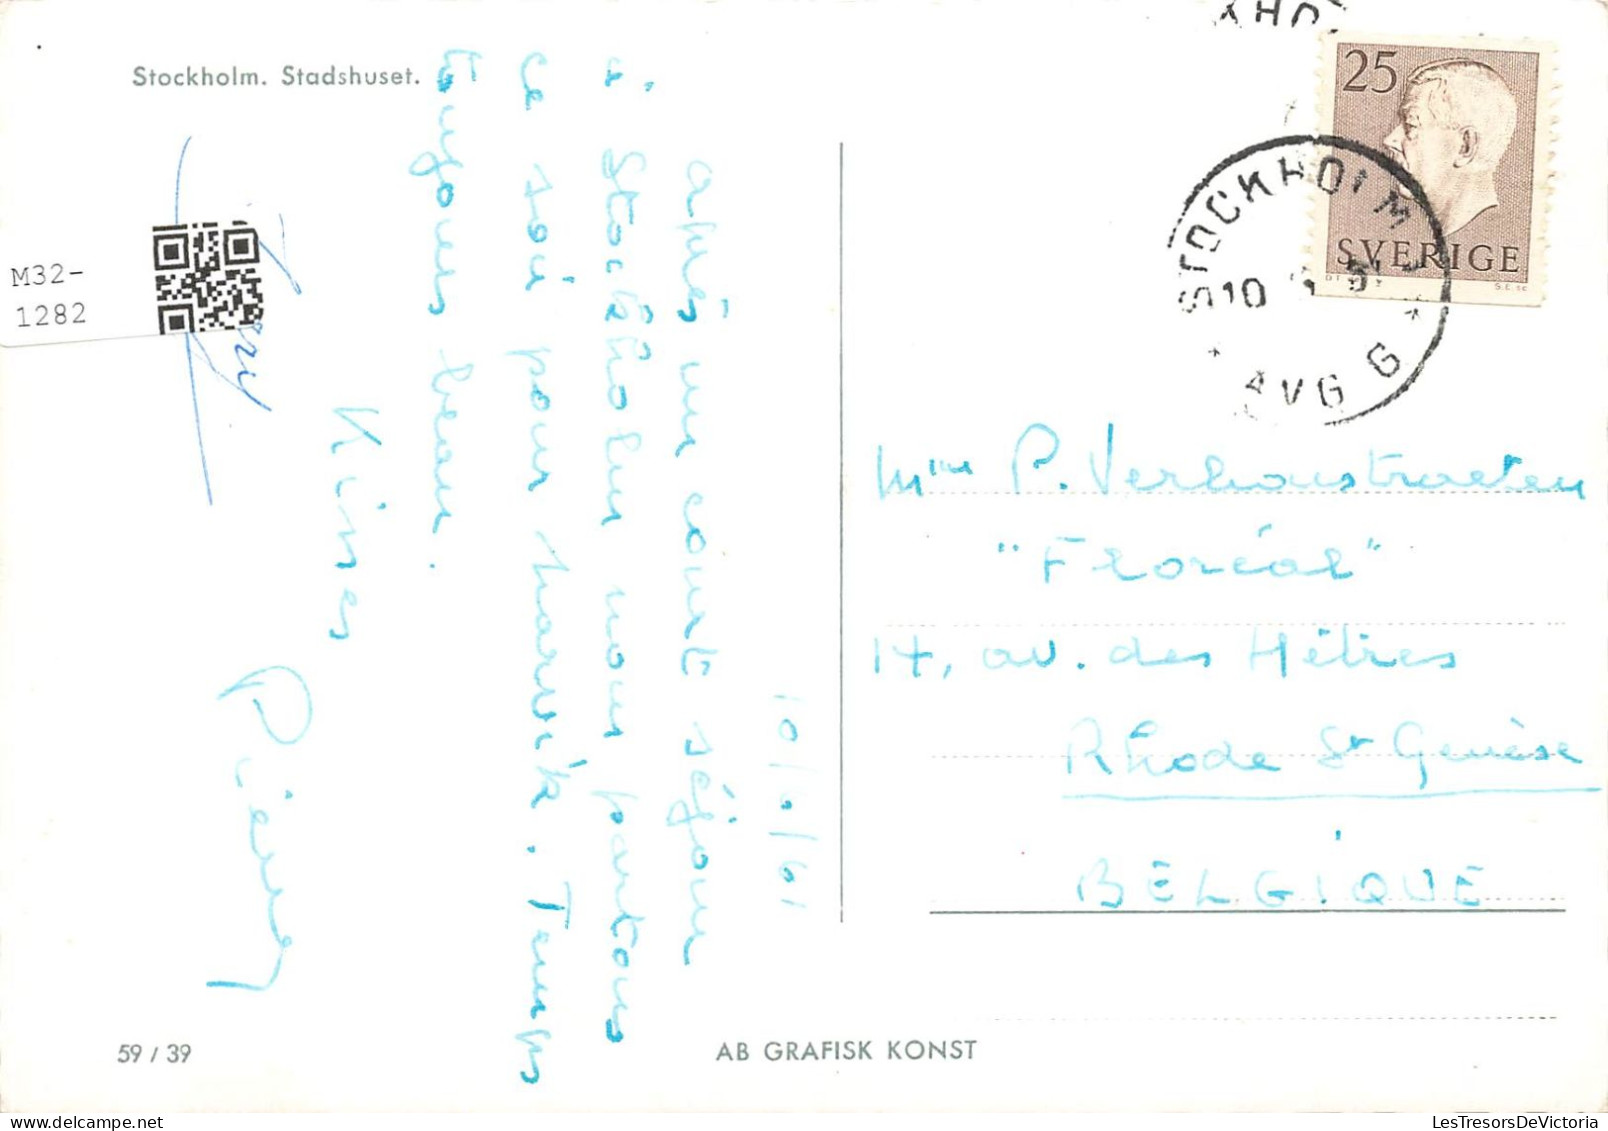 Stockholm. Stadshuset.
10/6/61
après un court séjour
à Stockholm nous partons
ce soir pour Narvik. Temps
toujours beau.
Kisses
Pierre
STOCKHOLM
10
AVG 6
25
SVERIGE
Mme P. Verhaustraeten
"Floréal"
14, av. des Hêtres
Rhode St Genèse
BELGIQUE
59 / 39
AB GRAFISK KONST
M32-
1282
LesTresorsDeVictoria